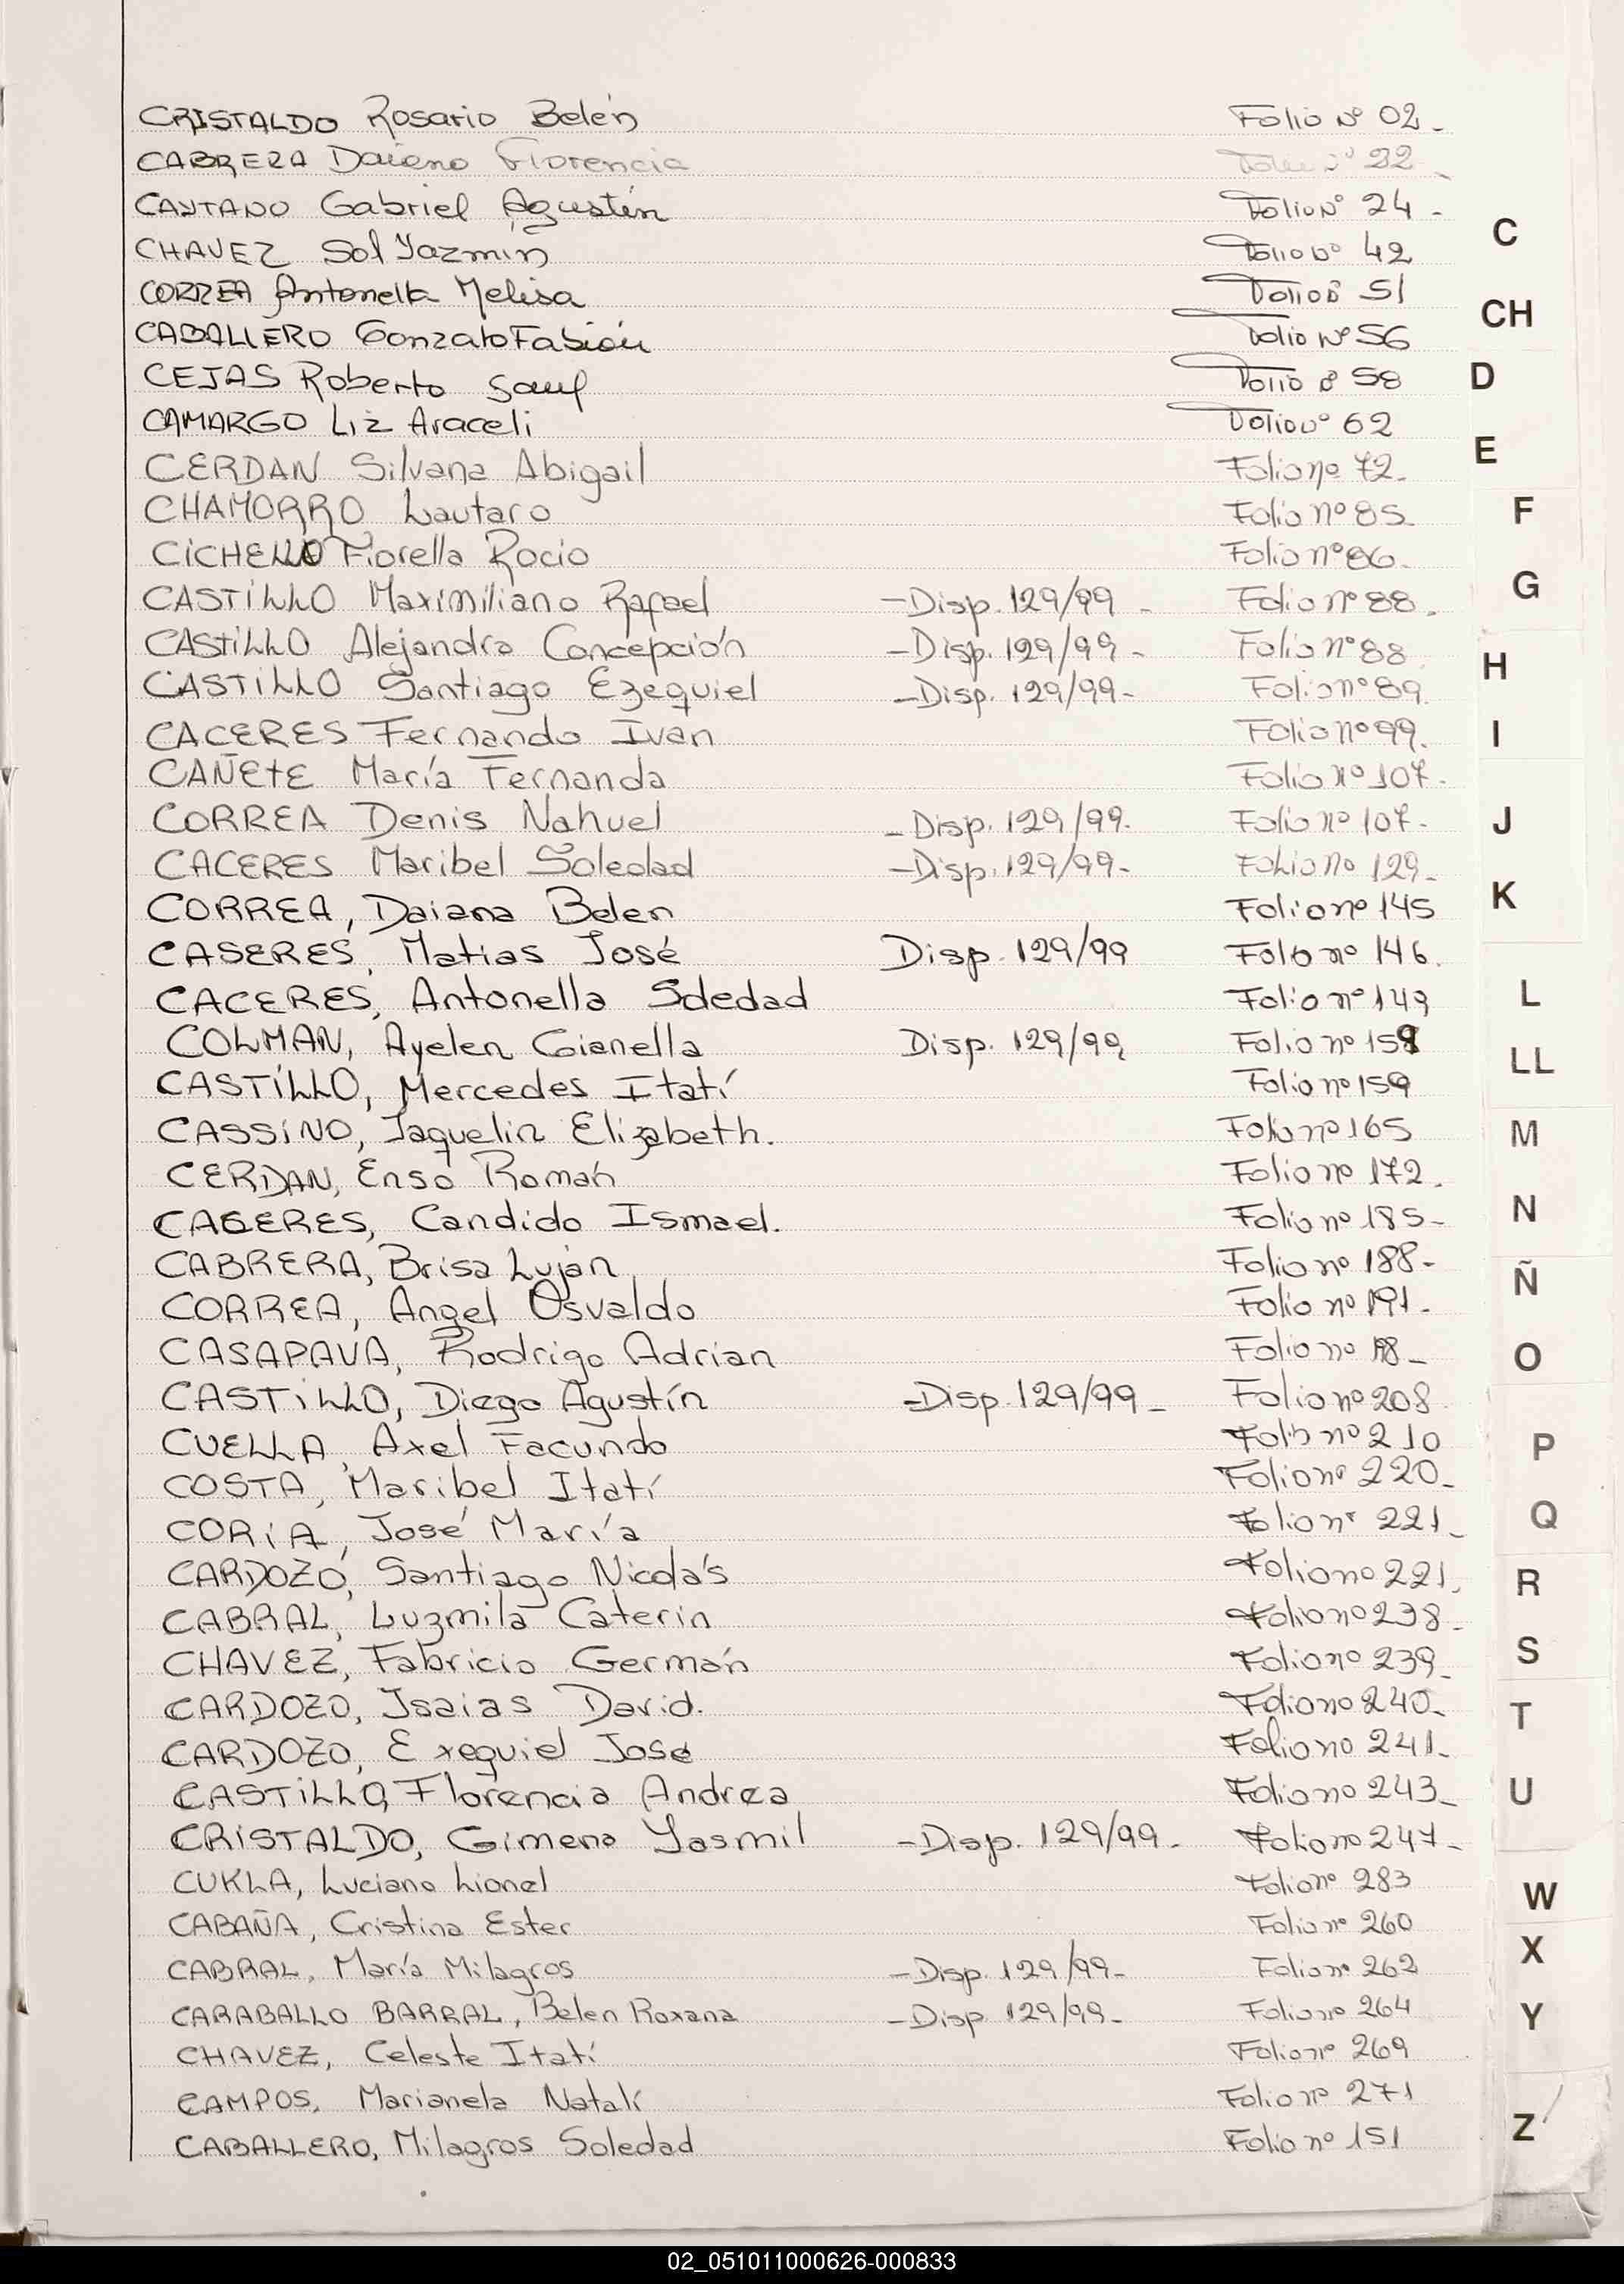 CRISTALDO Rosario Belén Folio Nº 02-
CABRERA Daiana Florencia Folio Nº 22-
CAYTANO Gabriel Agustín Folio Nº 24-
CHAVEZ Sol Yazmín Folio Nº 42
CORREA Antonella Melisa Folio Nº 51
CABALLERO Gonzalo Fabián Folio Nº 56
CEJAS Roberto Saul Folio Nº 58
CAMARGO Liz Araceli Folio Nº 62
CERDAN Silvana Abigail Folio nº 72-
CHAMORRO Lautaro Folio nº 85-
CiCHELLO Fiorella Rocio Folio nº 86-
CASTiLLO Maximiliano Rafael -Disp. 129/99- Folio nº 88-
CASTiLLO Alejandra Concepción -Disp. 129/99- Folio nº 88
CASTiLLO Santiago Ezequiel -Disp. 129/99- Folio nº 89
CACERES Fernando Ivan Folio nº 99-
CAÑEtE María Fernanda Folio nº 107-
CORREA Denis Nahuel -Disp. 129/99- Folio nº 107-
CACERES Maribel Soledad -Disp. 129/99- Folio nº 129-
CORREA, Daiana Belen Folio nº 145
CASERES, Matias José Disp. 129/99 Folio nº 146.
CACERES, Antonella Soledad Folio nº 149
COLMAN, Ayelen Gianella Disp. 129/99 Folio nº 159
CASTÍLLO, Mercedes Itatí Folio nº 159
CASSiNO, Jaquelin Elizabeth. Folio nº 165
CERDAN, Enso Román Folio nº 172.
CACERES, Candido Ismael. Folio nº 185-
CABRERA, Brisa Luján Folio nº 188-
CORREA, Angel Osvaldo Folio nº 191-
CASAPAVA, Rodrigo Adrian Folio nº
CASTiLLO, Diego Agustín -Disp. 129/99- Folio nº 208
CUELLA, Axel Facundo Folio nº 210
COSTA, Maribel Itatí Folio nº 220-
CORiA, José María Folio nº 221-
CARDOZO, Santiago Nicolás Folio nº 221.
CABRAL, Luzmila Caterin Folio nº 238-
CHAVEZ, Fabricio Germán Folio nº 239-
CARDOZO, Isaias David. Folio nº 240-
CARDOZO, Exequiel José Folio nº 241-
CASTiLLO, Florencia Andrea Folio nº 243-
CRiSTALDO, Gimena Yasmil -Disp. 129/99- Folio nº 247-
CUKLA, Luciano Lionel Folio nº 283
CABAÑA, Cristina Ester Folio nº 260
CABRAL, María Milagros -Disp. 129/99- Folio nº 262
CARABALLO BARRAL, Belen Roxana -Disp 129/99- Folio nº 264
CHAVEZ, Celeste Itatí Folio nº 269
CAMPOS, Marianela Natalí Folio nº 271
CABALLERO, Milagros Soledad Folio nº 151
C
CH
D
E
F
G
H
I
J
K
L
LL
M
N
Ñ
O
P
Q
R
S
T
U
W
X
Y
Z
02_051011000626-000833